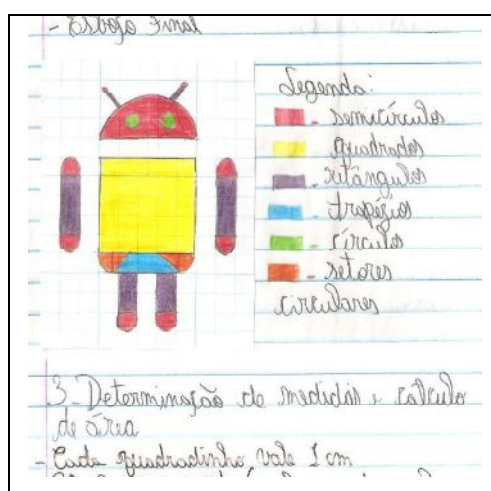 - Esboço Final
Legenda:
- semicírculos
- quadrados
- retângulos
- trapézios
- círculos
- setores
circulares
3- Determinação de medidas e cálculo
de área
- Cada quadradinho vale 1 cm